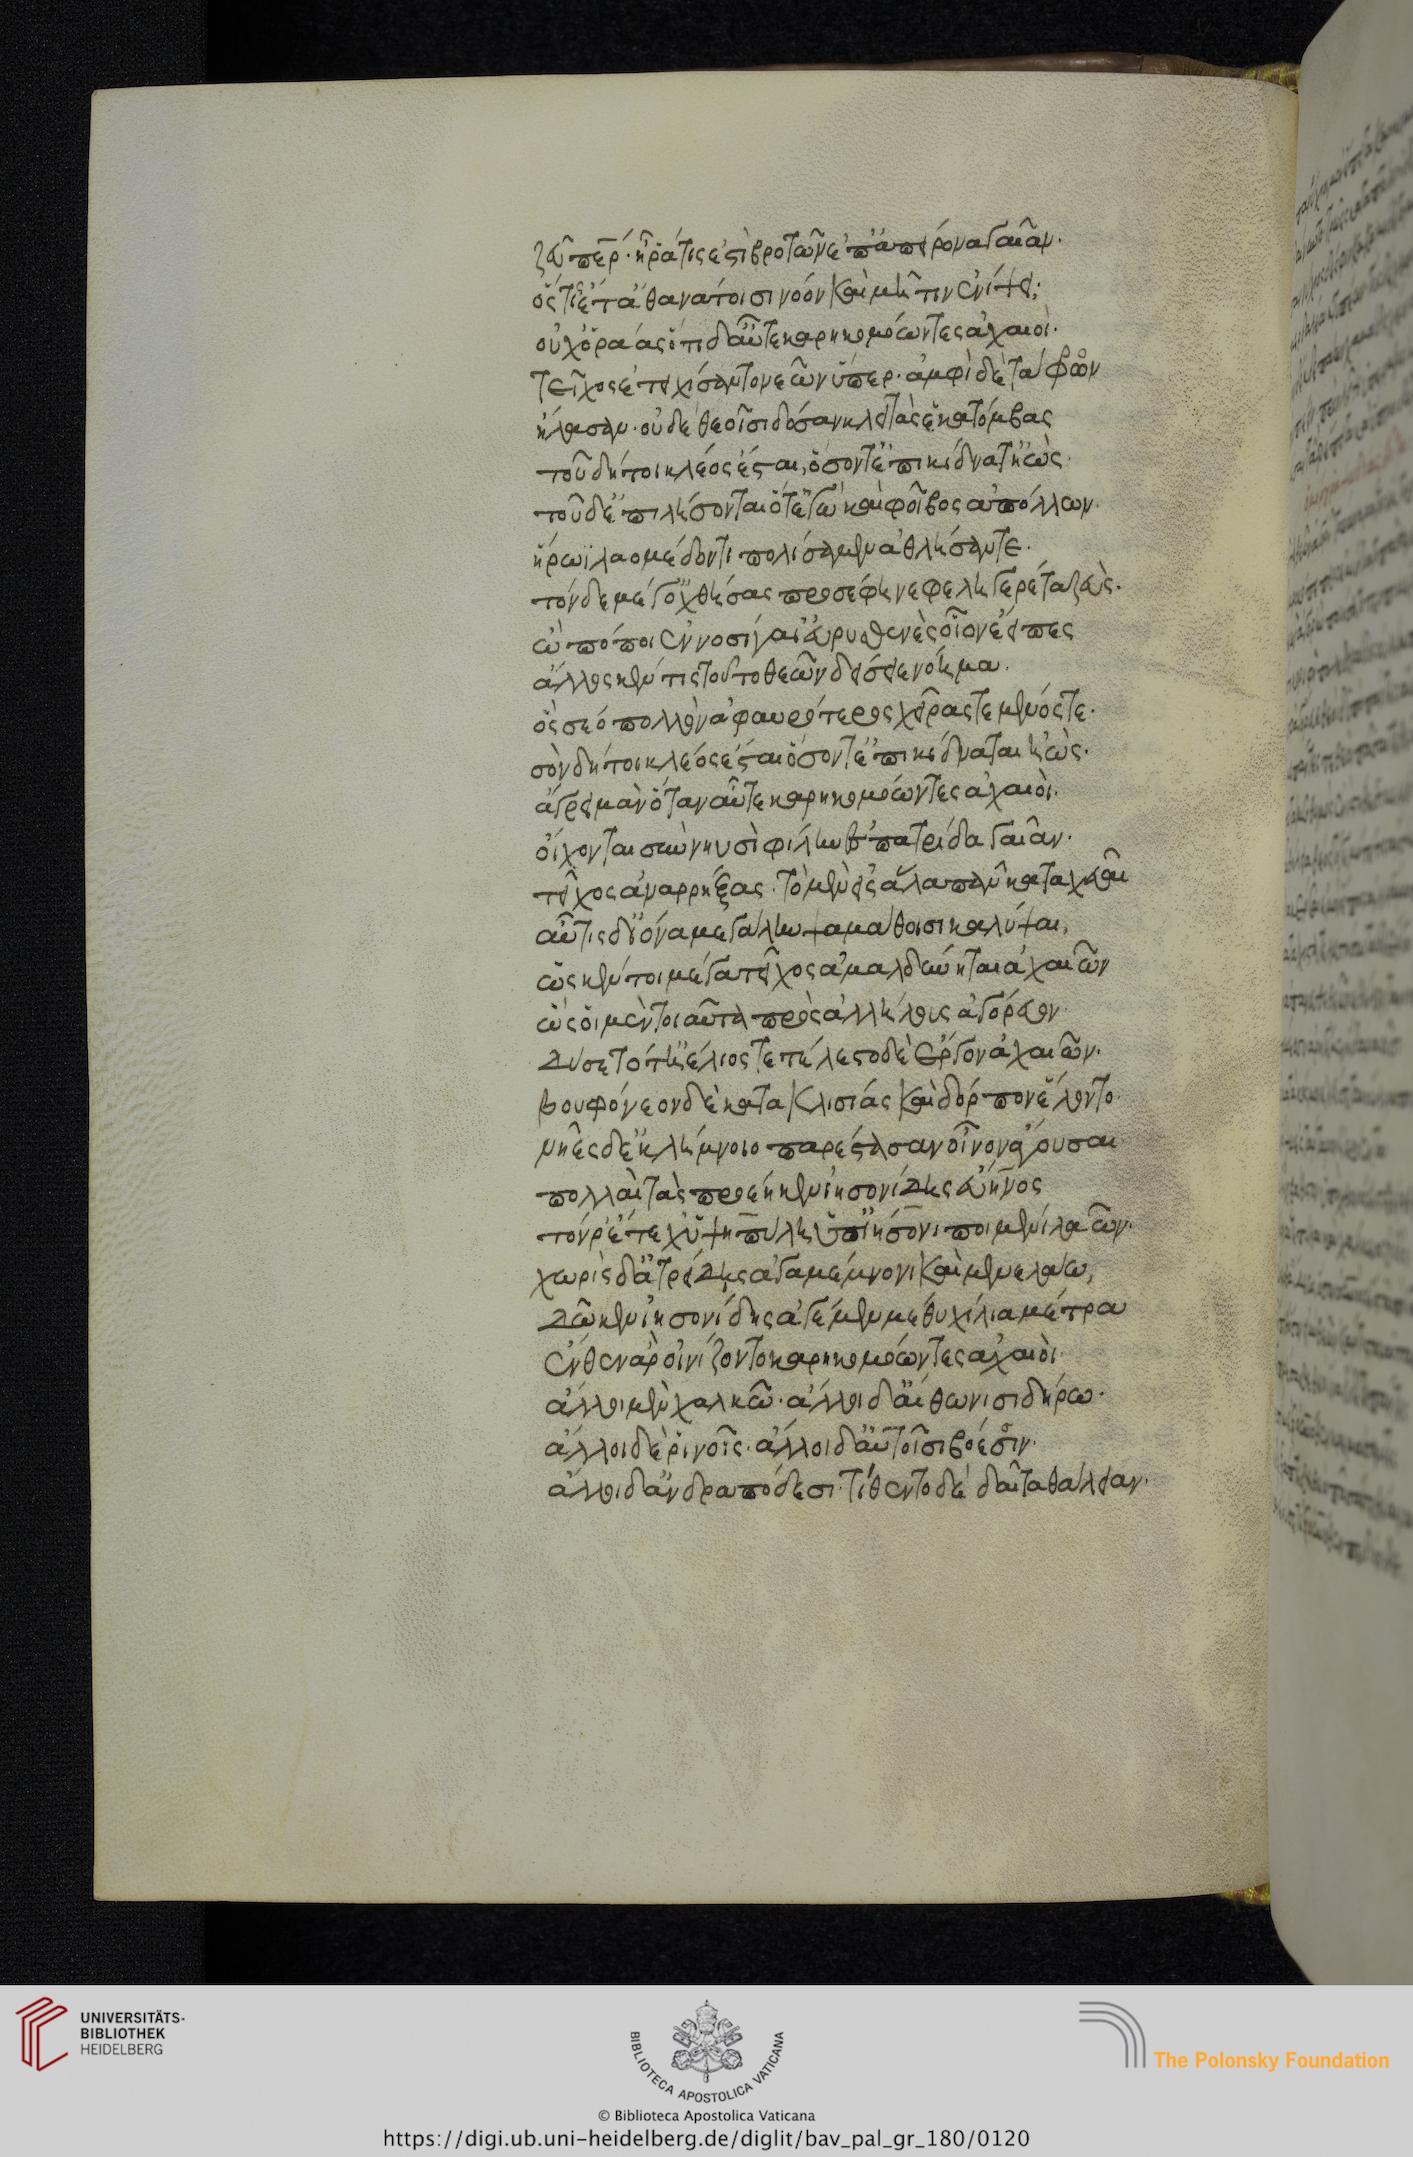 ζεῦ πάτερ· ἦ ῥά τίς ἐστι βροτῶν ἐπ' ἀπείρονα γαῖαν·
ὅς τις ἔτ' ἀθανάτοισι νόον καὶ μῆτιν ἐνίψει;
οὐχ ὁράας ὅτι δ' αὖτε καρηκομόωντες ἀχαιοὶ·
τεῖχος ἐτειχίσαντο νεῶν ὕπερ· ἀμφὶ δὲ τάφρον
ἤλασαν· οὐδὲ θεοῖσι δόσαν κλειτὰς ἑκατόμβας
τοῦ δή τοι κλέος ἔσται, ὅσον τ' ἐπικίδναται ἠώς·
τοῦ δ' ἐπιλήσονται ὅ τ' ἐγὼ καὶ φοῖβος ἀπόλλων·
ἥρωϊ λαομέδοντι πολίσαμεν ἀθλήσαντε·
τὸν δὲ μέγ' ὀχθήσας προσέφη νεφεληγερέτα ζεὺς·
ὢ πόποι ἐννοσίγαι' εὐρυσθενὲς οἷον ἔειπες
ἄλλος κέν τις τοῦτο θεῶν δείσειε νόημα·
ὃς σέο πολλὸν ἀφαυρότερος χεῖράς τε μένος τε·
σὸν δή τοι κλέος ἔσται ὅσον τ' ἐπικίδναται ἠὼς·
ἄγρει μὰν ὅταν αὖτε καρηκομόωντες ἀχαιοὶ·
οἴχονται σὺν νηυσὶ φίλην ἐς πατρίδα γαῖαν·
τεῖχος ἀναρρήξας· τὸ μὲν εἰς ἅλα πᾶν καταχεῦαι
αὖτις δ' ἠϊόνα μεγάλην ψαμάθοισι καλύψαι,
ὥς κέν τοι μέγα τεῖχος ἀμαλδύνηται ἀχαιῶν
ὣς οἱ μὲν τοιαῦτα πρὸς ἀλλήλους ἀγόρευον
δύσετο δ' ἠέλιος τετέλεστο δὲ ἔργον ἀχαιῶν·
βουφόνεον δὲ κατὰ κλισίας καὶ δόρπον ἕλοντο
νῆες δ' ἐκ λήμνοιο παρέστασαν οἶνον ἄγουσαι
πολλαὶ τὰς προέηκεν ἰησονίδης εὔηνος
τόν ῥ' ἔτεχ' ὑψιπύλη ὑπ' ἰήσονι ποιμένι λαῶν·
χωρὶς δ' ἀτρείδης ἀγαμέμνονι καὶ μενελάω,
δῶκεν ἰησονίδης ἀγέμεν μέθυ χίλια μέτρα
ἔνθεν ἄρ' οἰνίζοντο καρηκομόωντες ἀχαιοὶ·
ἄλλοι μὲν χαλκῶ· ἄλλοι δ' αἴθωνι σιδήρω·
ἄλλοι δὲ ῥινοῖς· ἄλλοι δ' αὐτοῖσι βόεσσιν·
ἄλλοι δ' ἀνδραπόδεσι· τίθεντο δὲ δαῖτα θάλειαν·
UNIVERSITÄTS-
BIBLIOTHEK
HEIDELBERG
BIBLIOTECA APOSTOLICA VATICANA
The Polonsky Foundation
© Biblioteca Apostolica Vaticana
https://digi.ub.uni-heidelberg.de/diglit/bav_pal_gr_180/0120